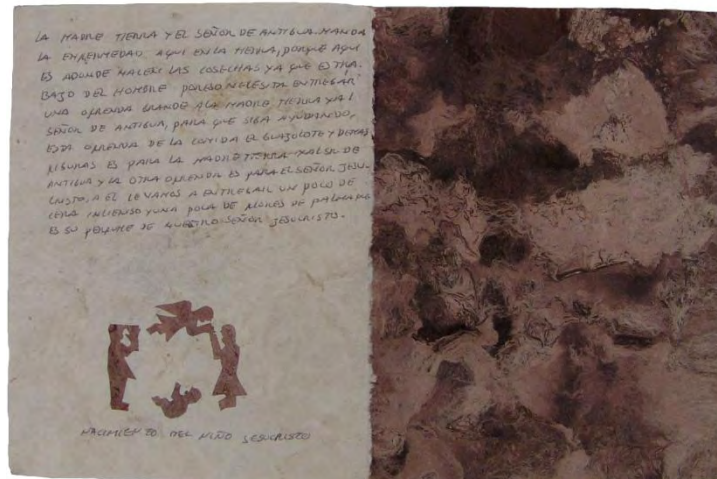 LA MADRE TIERRA Y EL SEÑOR DE ANTIGUA. MANDA
LA ENFERMEDAD AQUI EN LA TIERRA, PORQUE AQUI
ES ADONDE NACEN LAS COSECHAS YA QUE ES TRA.
BAJO DEL HOMBRE POR ESO NECESITA ENTREGAR
UNA OFRENDA GRANDE A LA MADRE TIERRA Y AL
SEÑOR DE ANTIGUA, PARA QUE SIGA AYUDANDO,
ESTA OFRENDA DE LA COMIDA EL GUAJOLOTE Y DEMAS
FIGURAS ES PARA LA MADRE TIERRA Y AL SR. DE
ANTIGUA Y LA OTRA OFRENDA ES PARA EL SEÑOR JESU-
CRISTO, A EL LE VAMOS A ENTREGAR UN POCO DE
CERA INCIENSO Y UNA POCA DE FLORES DE PALMA QUE
ES SU PERFUME DE NUESTRO SEÑOR JESUCRISTO.
NACIMIENTO DEL NIÑO JESUCRISTO